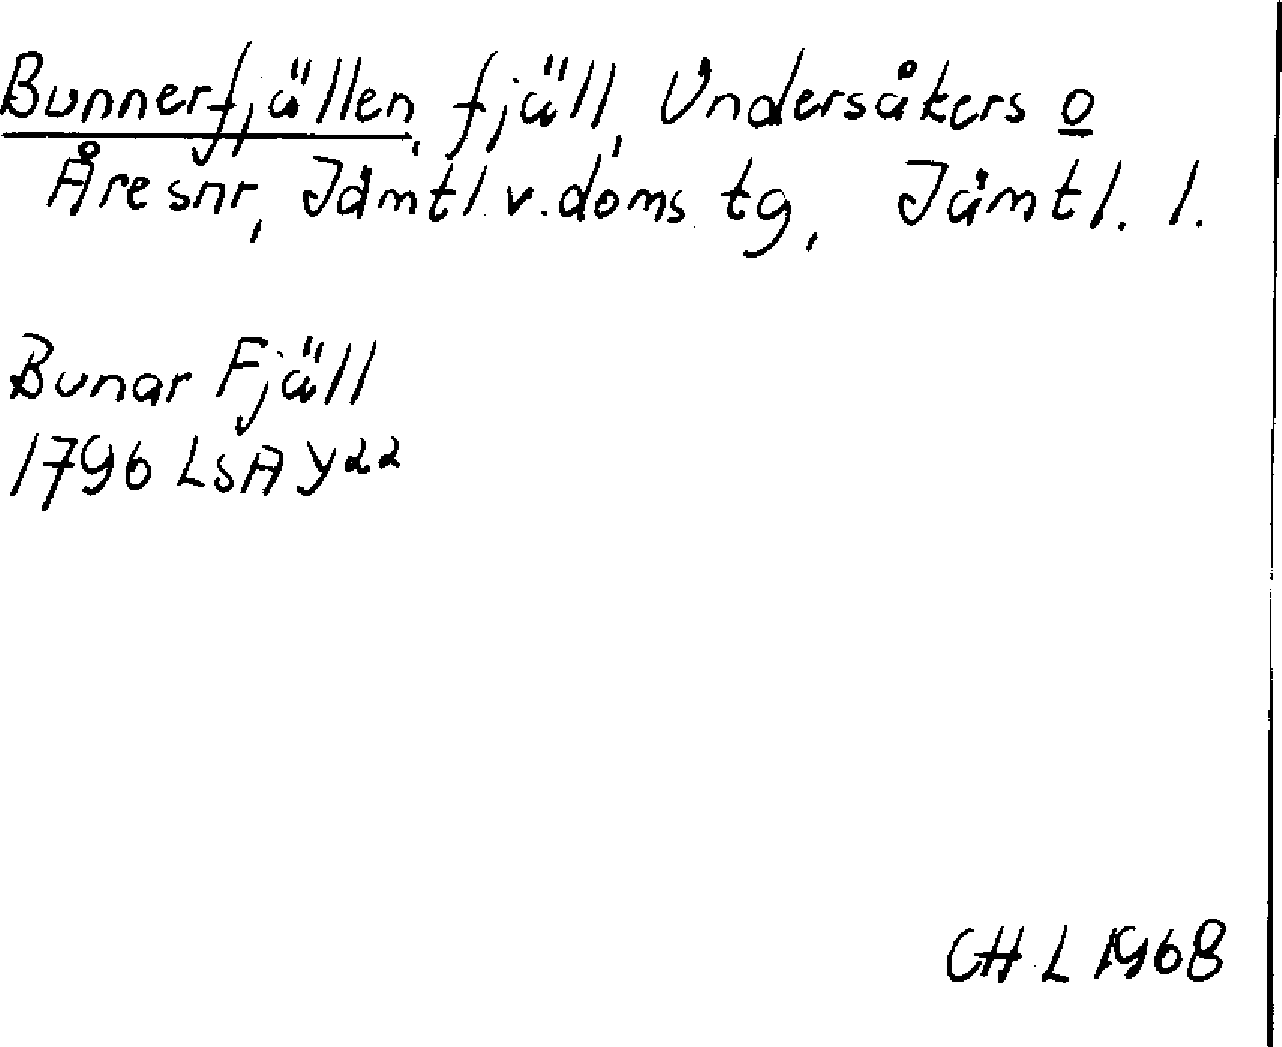 Bunnerfjällen, fjäll, Undersåkers o
Åre snr, Jämtl. v. doms. tg, Jämtl. l.
Bunar Fjäll
1796 LSA Y22
CHL 1968